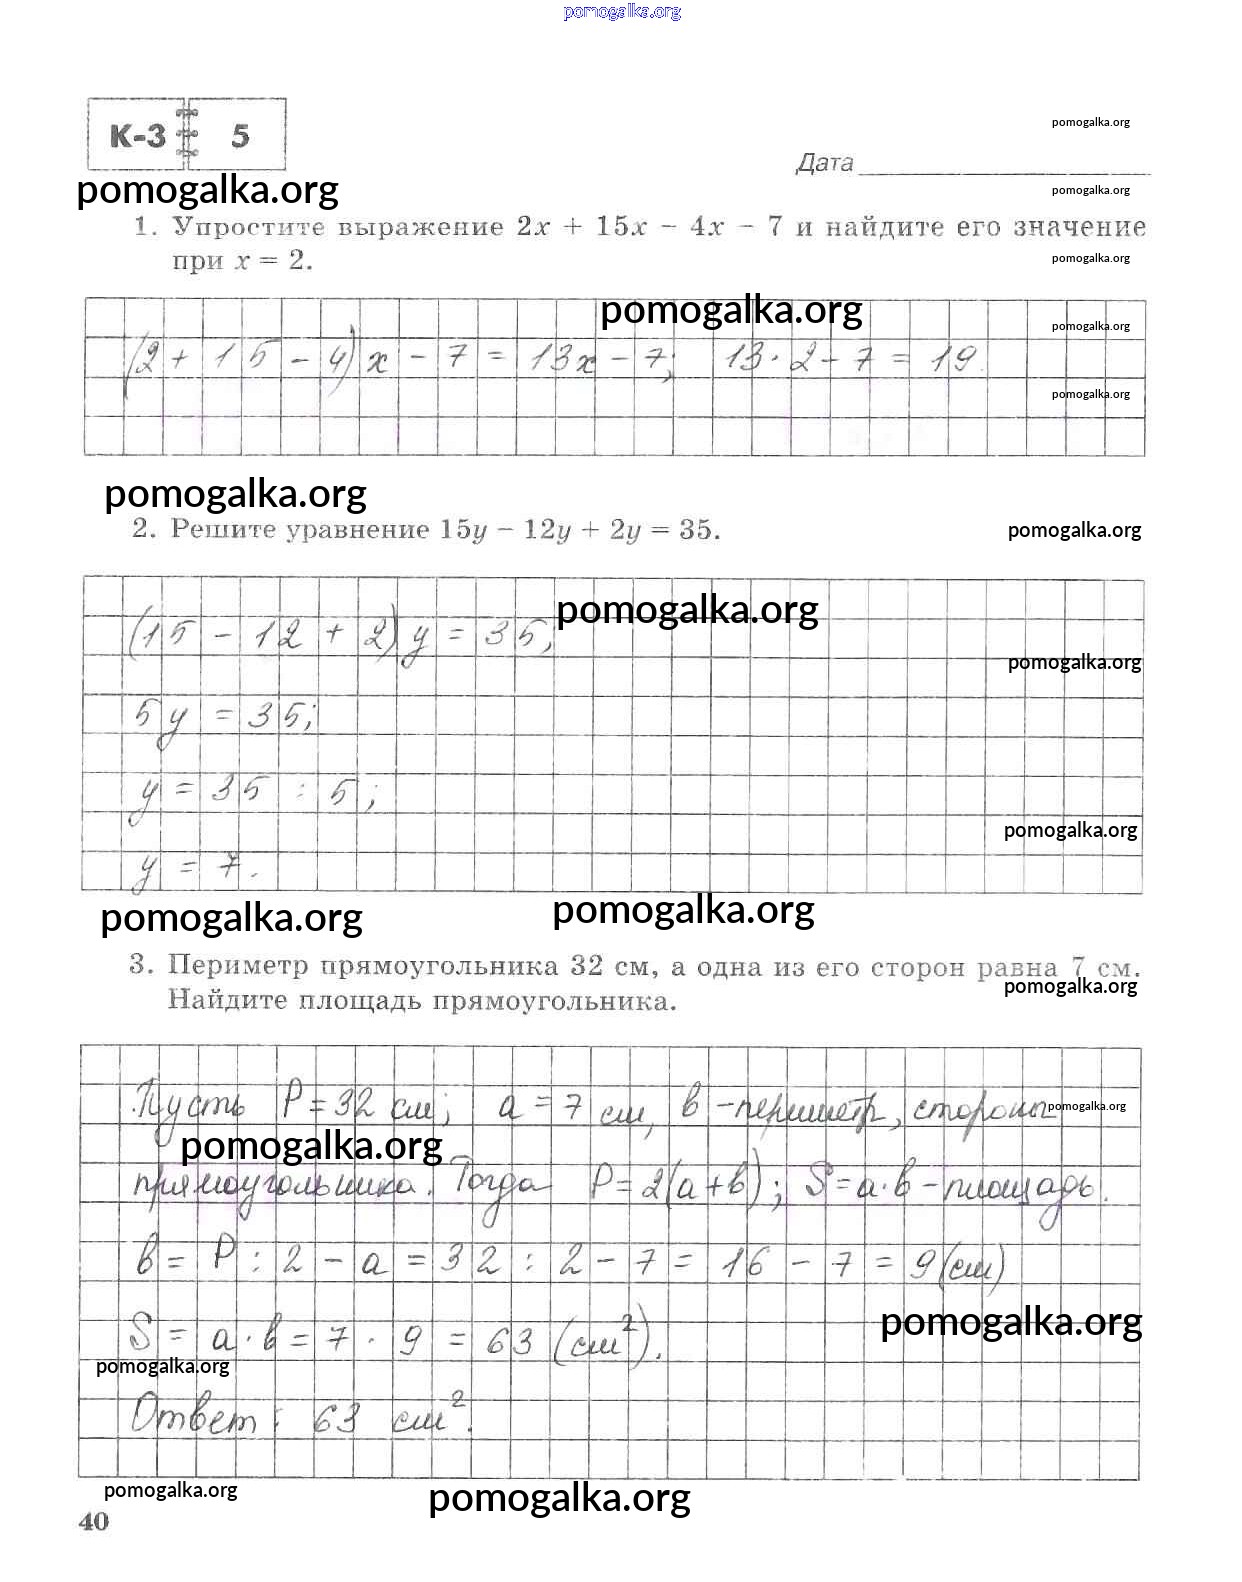 pomogalka.org
К-3 5
pomogalka.org
Дата
pomogalka.org
pomogalka.org
1. Упростите выражение 2x + 15x - 4x - 7 и найдите его значение
при x = 2.
pomogalka.org
pomogalka.org
pomogalka.org
(2 + 15 - 4) x - 7 = 13x - 7; 13 · 2 - 7 = 19.
pomogalka.org
pomogalka.org
2. Решите уравнение 15y - 12y + 2y = 35.
pomogalka.org
pomogalka.org
(15 - 12 + 2) y = 35;
pomogalka.org
5y = 35;
y = 35 : 5;
pomogalka.org
y = 7.
pomogalka.org
pomogalka.org
3. Периметр прямоугольника 32 см, а одна из его сторон равна 7 см.
pomogalka.org
Найдите площадь прямоугольника.
Пусть P = 32 см; a = 7 см, b - периметр, стороны
pomogalka.org
pomogalka.org
прямоугольника. Тогда P = 2(a + b); S = a · b - площадь.
b = P : 2 - a = 32 : 2 - 7 = 16 - 7 = 9 (см)
pomogalka.org
S = a · b = 7 · 9 = 63 (см²).
pomogalka.org
Ответ: 63 см².
pomogalka.org
pomogalka.org
40